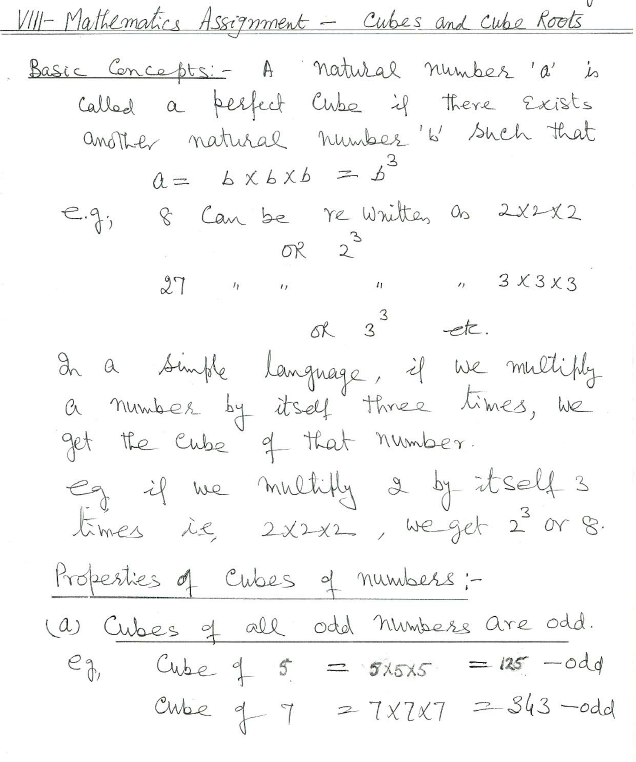 VIII- Mathematics Assignment - Cubes and Cube Roots
Basic Concepts:- A natural number 'a' is
called a perfect Cube if there Exists
another natural number 'b' such that
a = b X b X b = b³
e.g; 8 Can be re written as 2X2X2
OR 2³
27 " " " " 3 X 3 X 3
OR 3³ etc.
In a simple language, if we multiply
a number by itself three times, we
get the Cube of that number.
eg if we multiply 2 by itself 3
times ie, 2X2X2, we get 2³ or 8.
Properties of Cubes of numbers :-
(a) Cubes of all odd numbers are odd.
eg, Cube of 5 = 5X5X5 = 125 - odd
Cube of 7 = 7X7X7 = 343 - odd